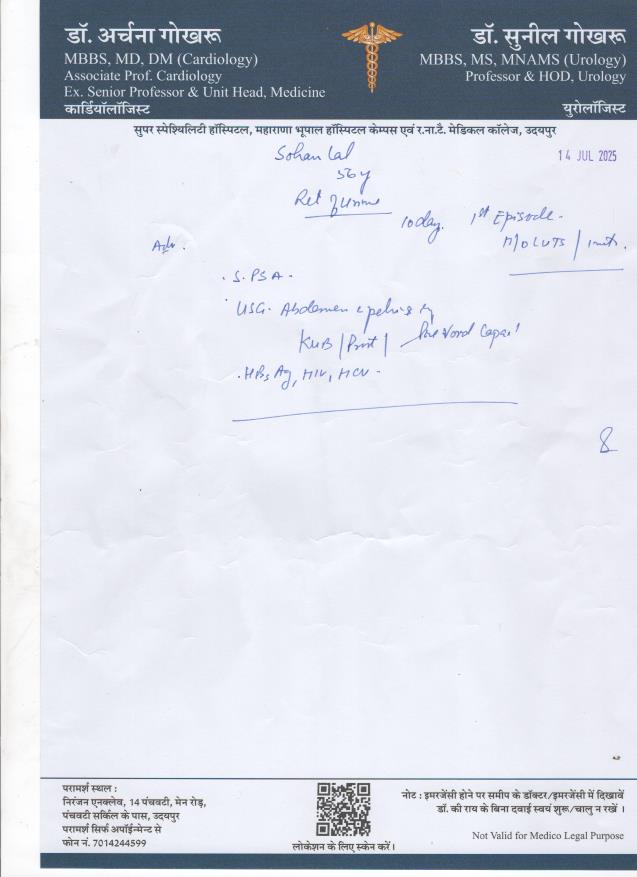 डॉ. अर्चना गोखरू
MBBS, MD, DM (Cardiology)
Associate Prof. Cardiology
Ex. Senior Professor & Unit Head, Medicine
कार्डियॉलॉजिस्ट
डॉ. सुनील गोखरू
MBBS, MS, MNAMS (Urology)
Professor & HOD, Urology
युरोलॉजिस्ट
सुपर स्पेश्यिलिटी हॉस्पिटल, महाराणा भूपाल हॉस्पिटल केम्पस एवं र.ना.टै. मेडिकल कॉलेज, उदयपुर
14 JUL 2025
Sohan Lal
56y
Ret of Urine
10 day. 1st Episode.
H/O LUTS /
Adv.
. S. PSA.
USG. Abdomen & pelvis
KUB / Prost / Post Void
. HBsAg, HIV, HCV.
परामर्श स्थल :
निरंजन एनक्लेव, 14 पंचवटी, मेन रोड़,
पंचवटी सर्किल के पास, उदयपुर
परामर्श सिर्फ अपॉईन्मेन्ट से
फोन नं. 7014244599
लोकेशन के लिए स्केन करें।
नोट : इमरजेंसी होने पर समीप के डॉक्टर/इमरजेंसी में दिखावें
डॉ. की राय के बिना दवाई स्वयं शुरू/चालु न रखें ।
Not Valid for Medico Legal Purpose